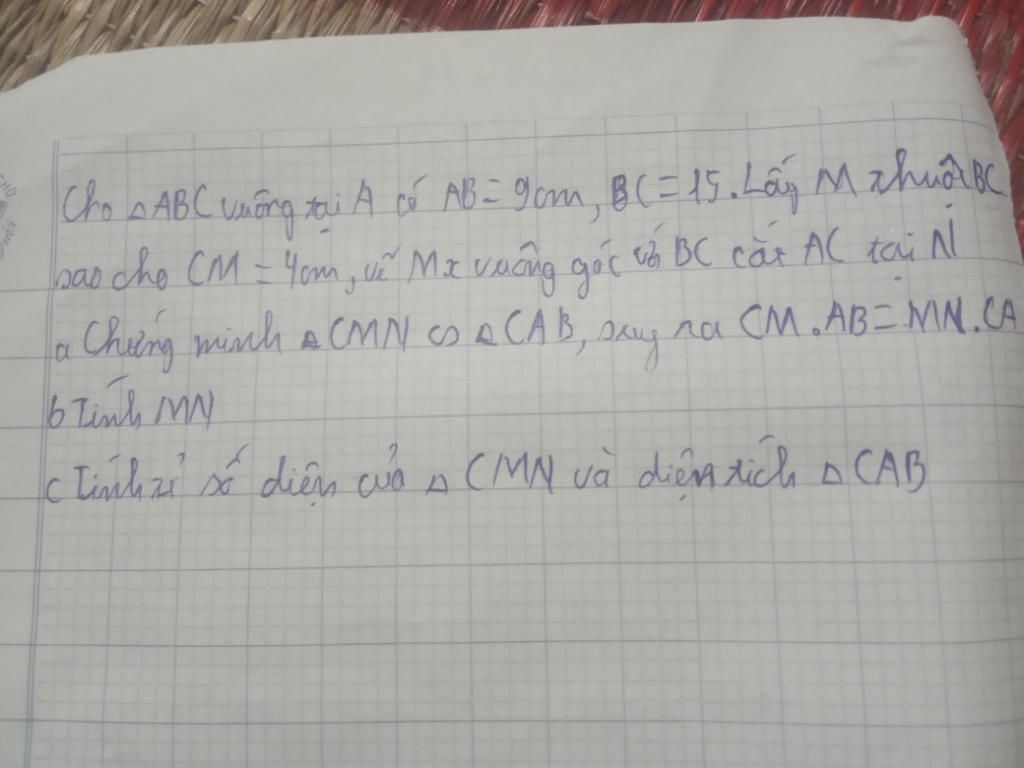 Cho △ABC vuông tại A có AB = 9cm, BC = 15. Lấy M thuộc BC
sao cho CM = 4cm, vẽ Mx vuông góc với BC cắt AC tại N
a Chứng minh △CMN ∽ △CAB, suy ra CM.AB = MN.CA
b Tính MN
c Tính tỉ số diện của △CMN và diện tích △CAB